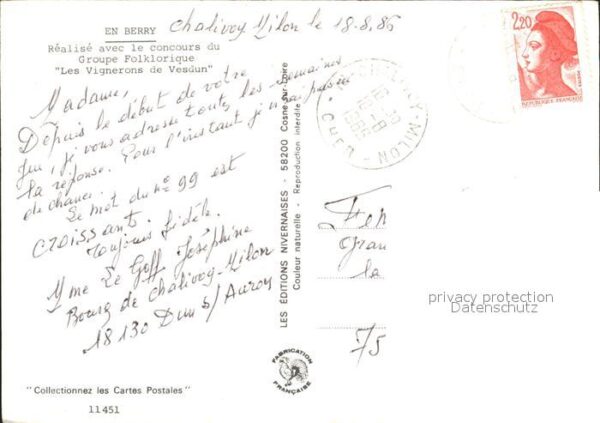 EN BERRY
Chalivoy Milon le 18.8.86
Réalisé avec le concours du
Groupe Folklorique
"Les Vignerons de Vesdun"
Madame,
Depuis le début de votre
jeu, je vous adresse toutes les semaines
la réponse. Pour l'instant je n'ai pas eu
de chance.
Le mot du n° 99 est
croissant.
Toujours fidèle.
Mme Le Goff Joséphine
Bourg de Chalivoy-Milon
18130 Dun s/ Auron
"Collectionnez les Cartes Postales"
11451
LES ÉDITIONS NIVERNAISES - 58200 Cosne-sur-Loire
Couleur naturelle - Reproduction interdite
FABRICATION
FRANÇAISE
-MILON-
CHER
18-8
1986
2,20
REPUBLIQUE FRANÇAISE
Fran
la
75
privacy protection
Datenschutz